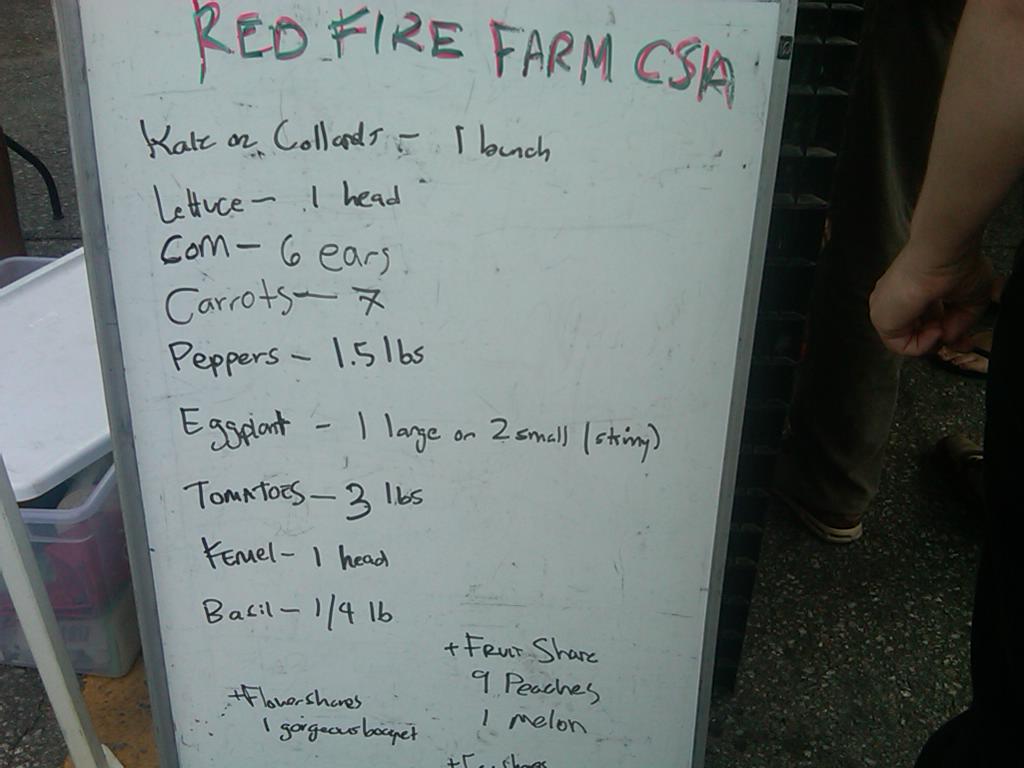 RED FIRE FARM CSA
Kale or Collards - 1 bunch
Lettuce - 1 head
Corn - 6 ears
Carrots - 7
Peppers - 1.5 lbs
Eggplant - 1 large or 2 small (skinny)
Tomatoes - 3 lbs
- 1 head
Basil - 1/4 lb
+ Fruit Share
9 Peaches
1 melon
+ Flower shares
1 gorgeous boqet